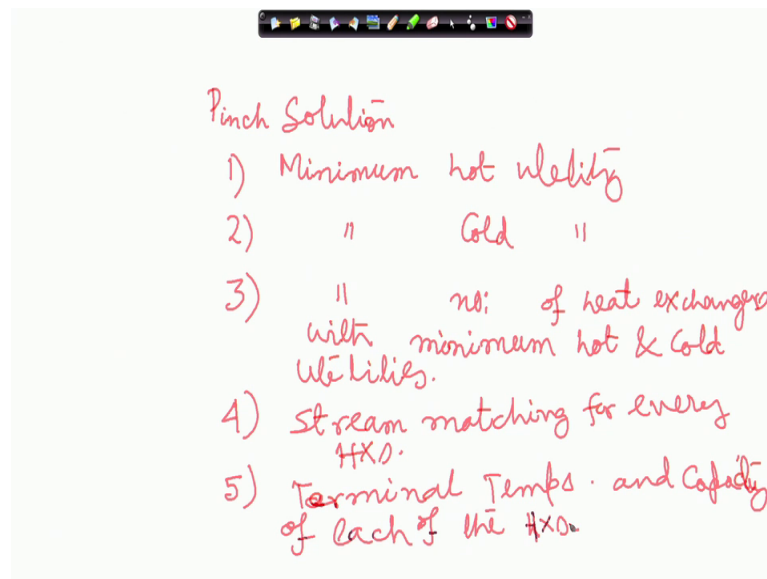 Pinch Solution
1) Minimum hot utility
2) " Cold "
3) " no: of heat exchangers
with minimum hot & Cold
utilities.
4) Stream matching for every
HXD.
5) Terminal Temps. and Capacity
of each of the HXD.